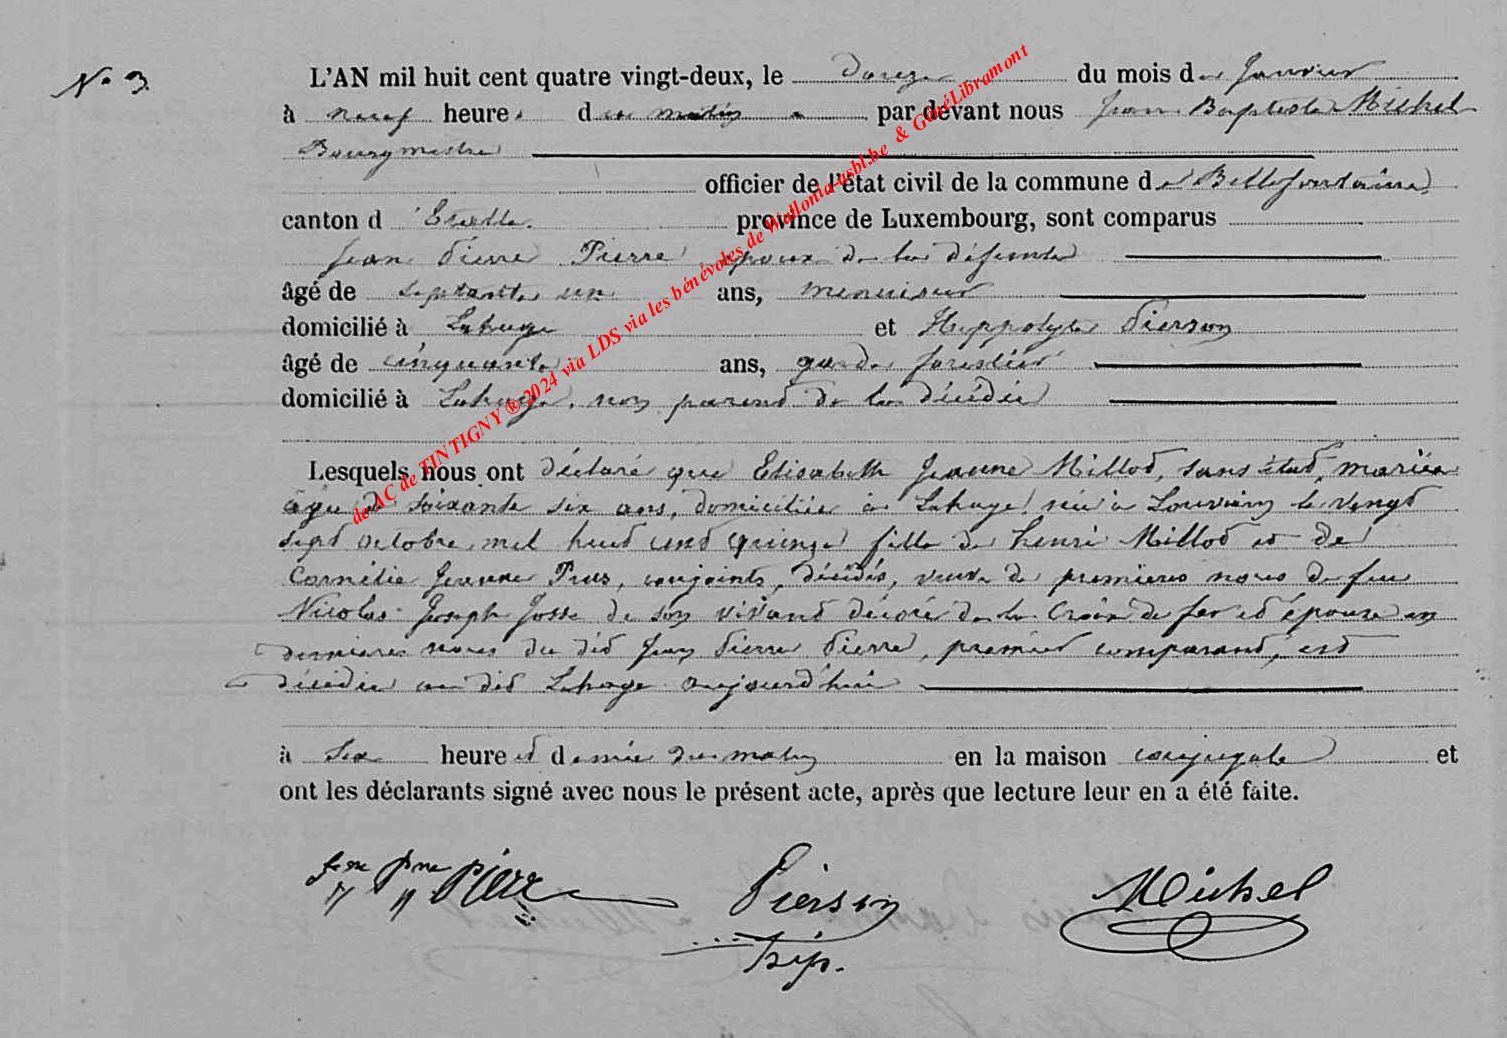 N° 3.
L'AN mil huit cent quatre vingt-deux, le Douze du mois de Janvier
à neuf heures du matin par devant nous Jean Baptiste Michel
Bourgmestre
officier de l'état civil de la commune de Bellefontaine,
canton d'Etalle, province de Luxembourg, sont comparus
Jean Pierre Pierre, époux de la défunte
âgé de septante un ans, menuisier
domicilié à Lahage et Hippolyte Pierson
âgé de cinquante ans, garde forestier
domicilié à Lahage, non parent de la décédée
Lesquels nous ont déclaré que Elisabeth Jeanne Millot, sans état, mariée
âgée de soixante six ans, domiciliée à Lahage, née à Louvain le vingt
sept octobre mil huit cent quinze fille de Henri Millot et de
Cornélie Jeanne Prus, conjoints, décédés, veuve de premières noces de feu
Nicolas Joseph Josse de son vivant décoré de la Croix de fer et épouse en
dernières noces du dit Jean Pierre Pierre, premier comparant, est
décédée au dit Lahage aujourd'hui
à six heure et demie du matin en la maison conjugale et
ont les déclarants signé avec nous le présent acte, après que lecture leur en a été faite.
Jean Prre Pierre Pierson Michel
hip.
de AC de TINTIGNY ® 2024 via LDS via les bénévoles de Wallonia-asbl.be & GénéLibramont